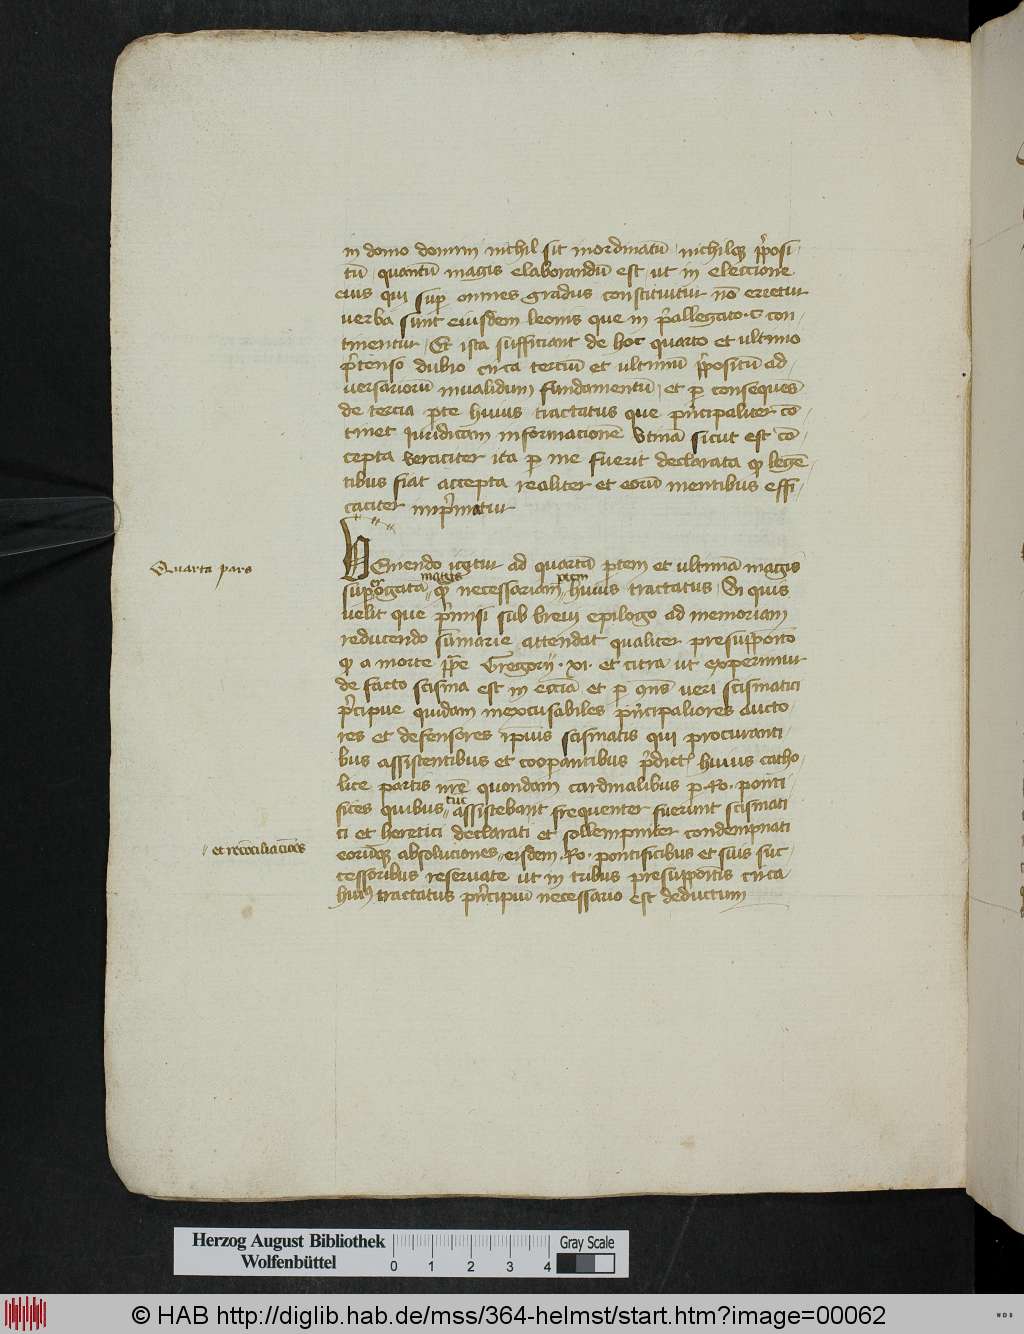 in domo domini nichil sit inordinatū nichilqȝ p̄posi-
tū quantū magis elaborandū est ut in eleccione
eius qui sup omnes gradus constituitur nō erretur
verba sunt eiusdem leonis que in p̄allegato c con-
tinentur Et ista sufficiant de hoc quarto et ultimo
p̄tenso dubio circa terciū et ultimū p̄positū ad-
versariorū invalidum fundamentū et p conseques
de tercia pte huius tractatus que p̄ncipaliter cō-
tinet Iuridicam informacionē Utinā sicut est cō-
cepta veraciter ita p me fuerit declarata qƺ legē-
tibus fiat accepta realiter et eorū mentibus effi-
caciter imp̄matur
Quarta pars
Veniendo igitur ad quartā ptem et ultimā magis
sup̄erogatā qƺ magis necessariam ptem huius tractatus Si quis
velit que p̄misi sub brevi epilogo ad memoriam
reducendo sūmarie attendat qualiter presupposito
qƺ a morte ppe Gregorii xi et citra ut experimur
de facto scisma est in ecciā et p qns veri scismatici
p̄cipue quidam inexcusabiles p̄ncipaliores aucto-
res et defensores ipius scismatis qui procuranti-
bus assistentibus et coopantibus p̄dict huius catho-
lice partis nr̄e quondam cardinalibus p Ro ponti-
fices quibus tūc assistebant frequenter fuerunt scismati
ci et heretici declarati et sollempniter condempnati
et recōciliacōes
eorūqȝ absoluciones eisdem Ro pontificibus et suis suc-
cessoribus reservate ut in tribus presuppositis circa
huiꝰ tractatus p̄ncipiū necessario est deductum
Herzog August Bibliothek
Wolfenbüttel
0 1 2 3 4
Gray Scale
© HAB http://diglib.hab.de/mss/364-helmst/start.htm?image=00062